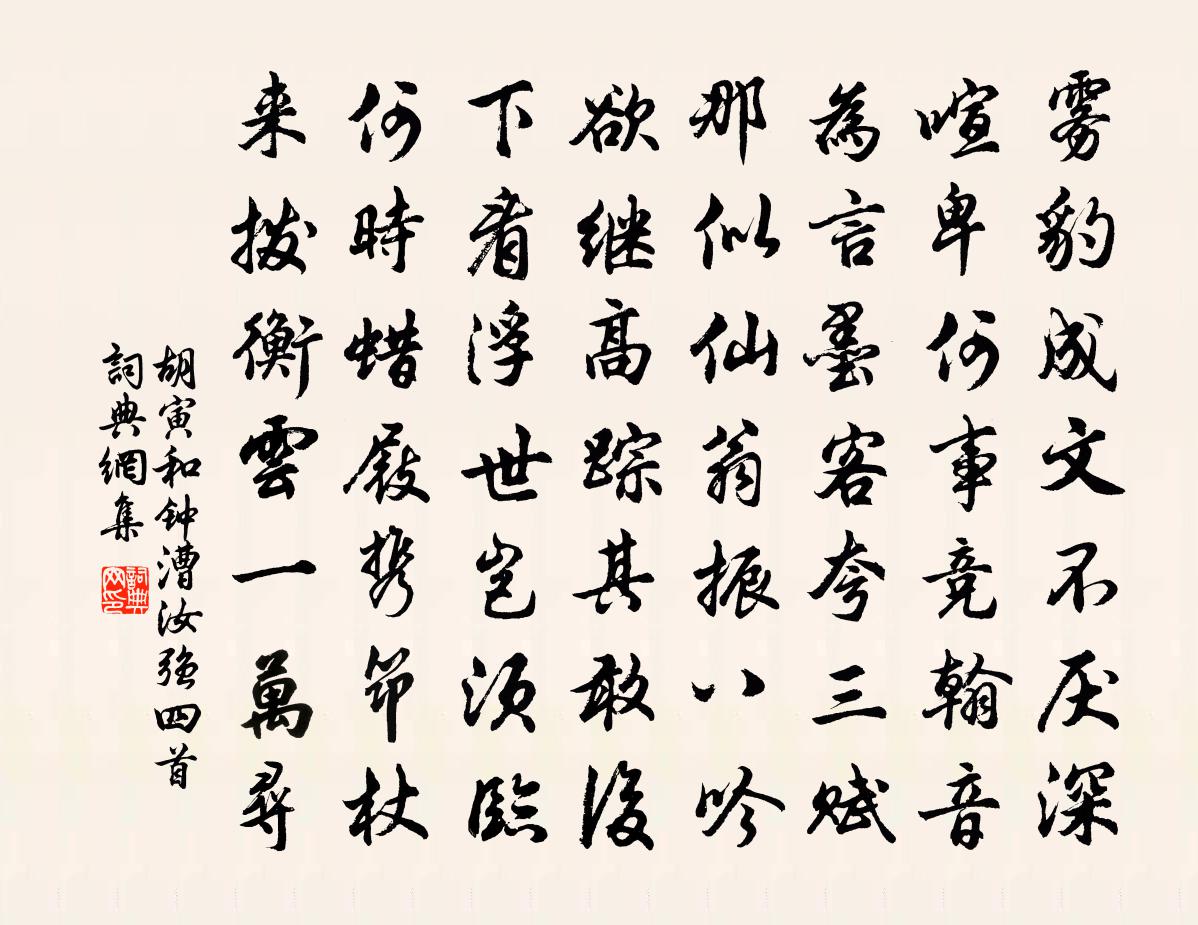 雾豹成文不厌深
喧卑何事竞翰音
為言墨客夸三赋
那似仙翁振八吟
欲继高踪其敢後
下看浮世岂须臨
何時蜡屐携筇杖
来拨衡雲一萬尋
胡寅和钟漕汝强四首
詞典網集
詞典網印